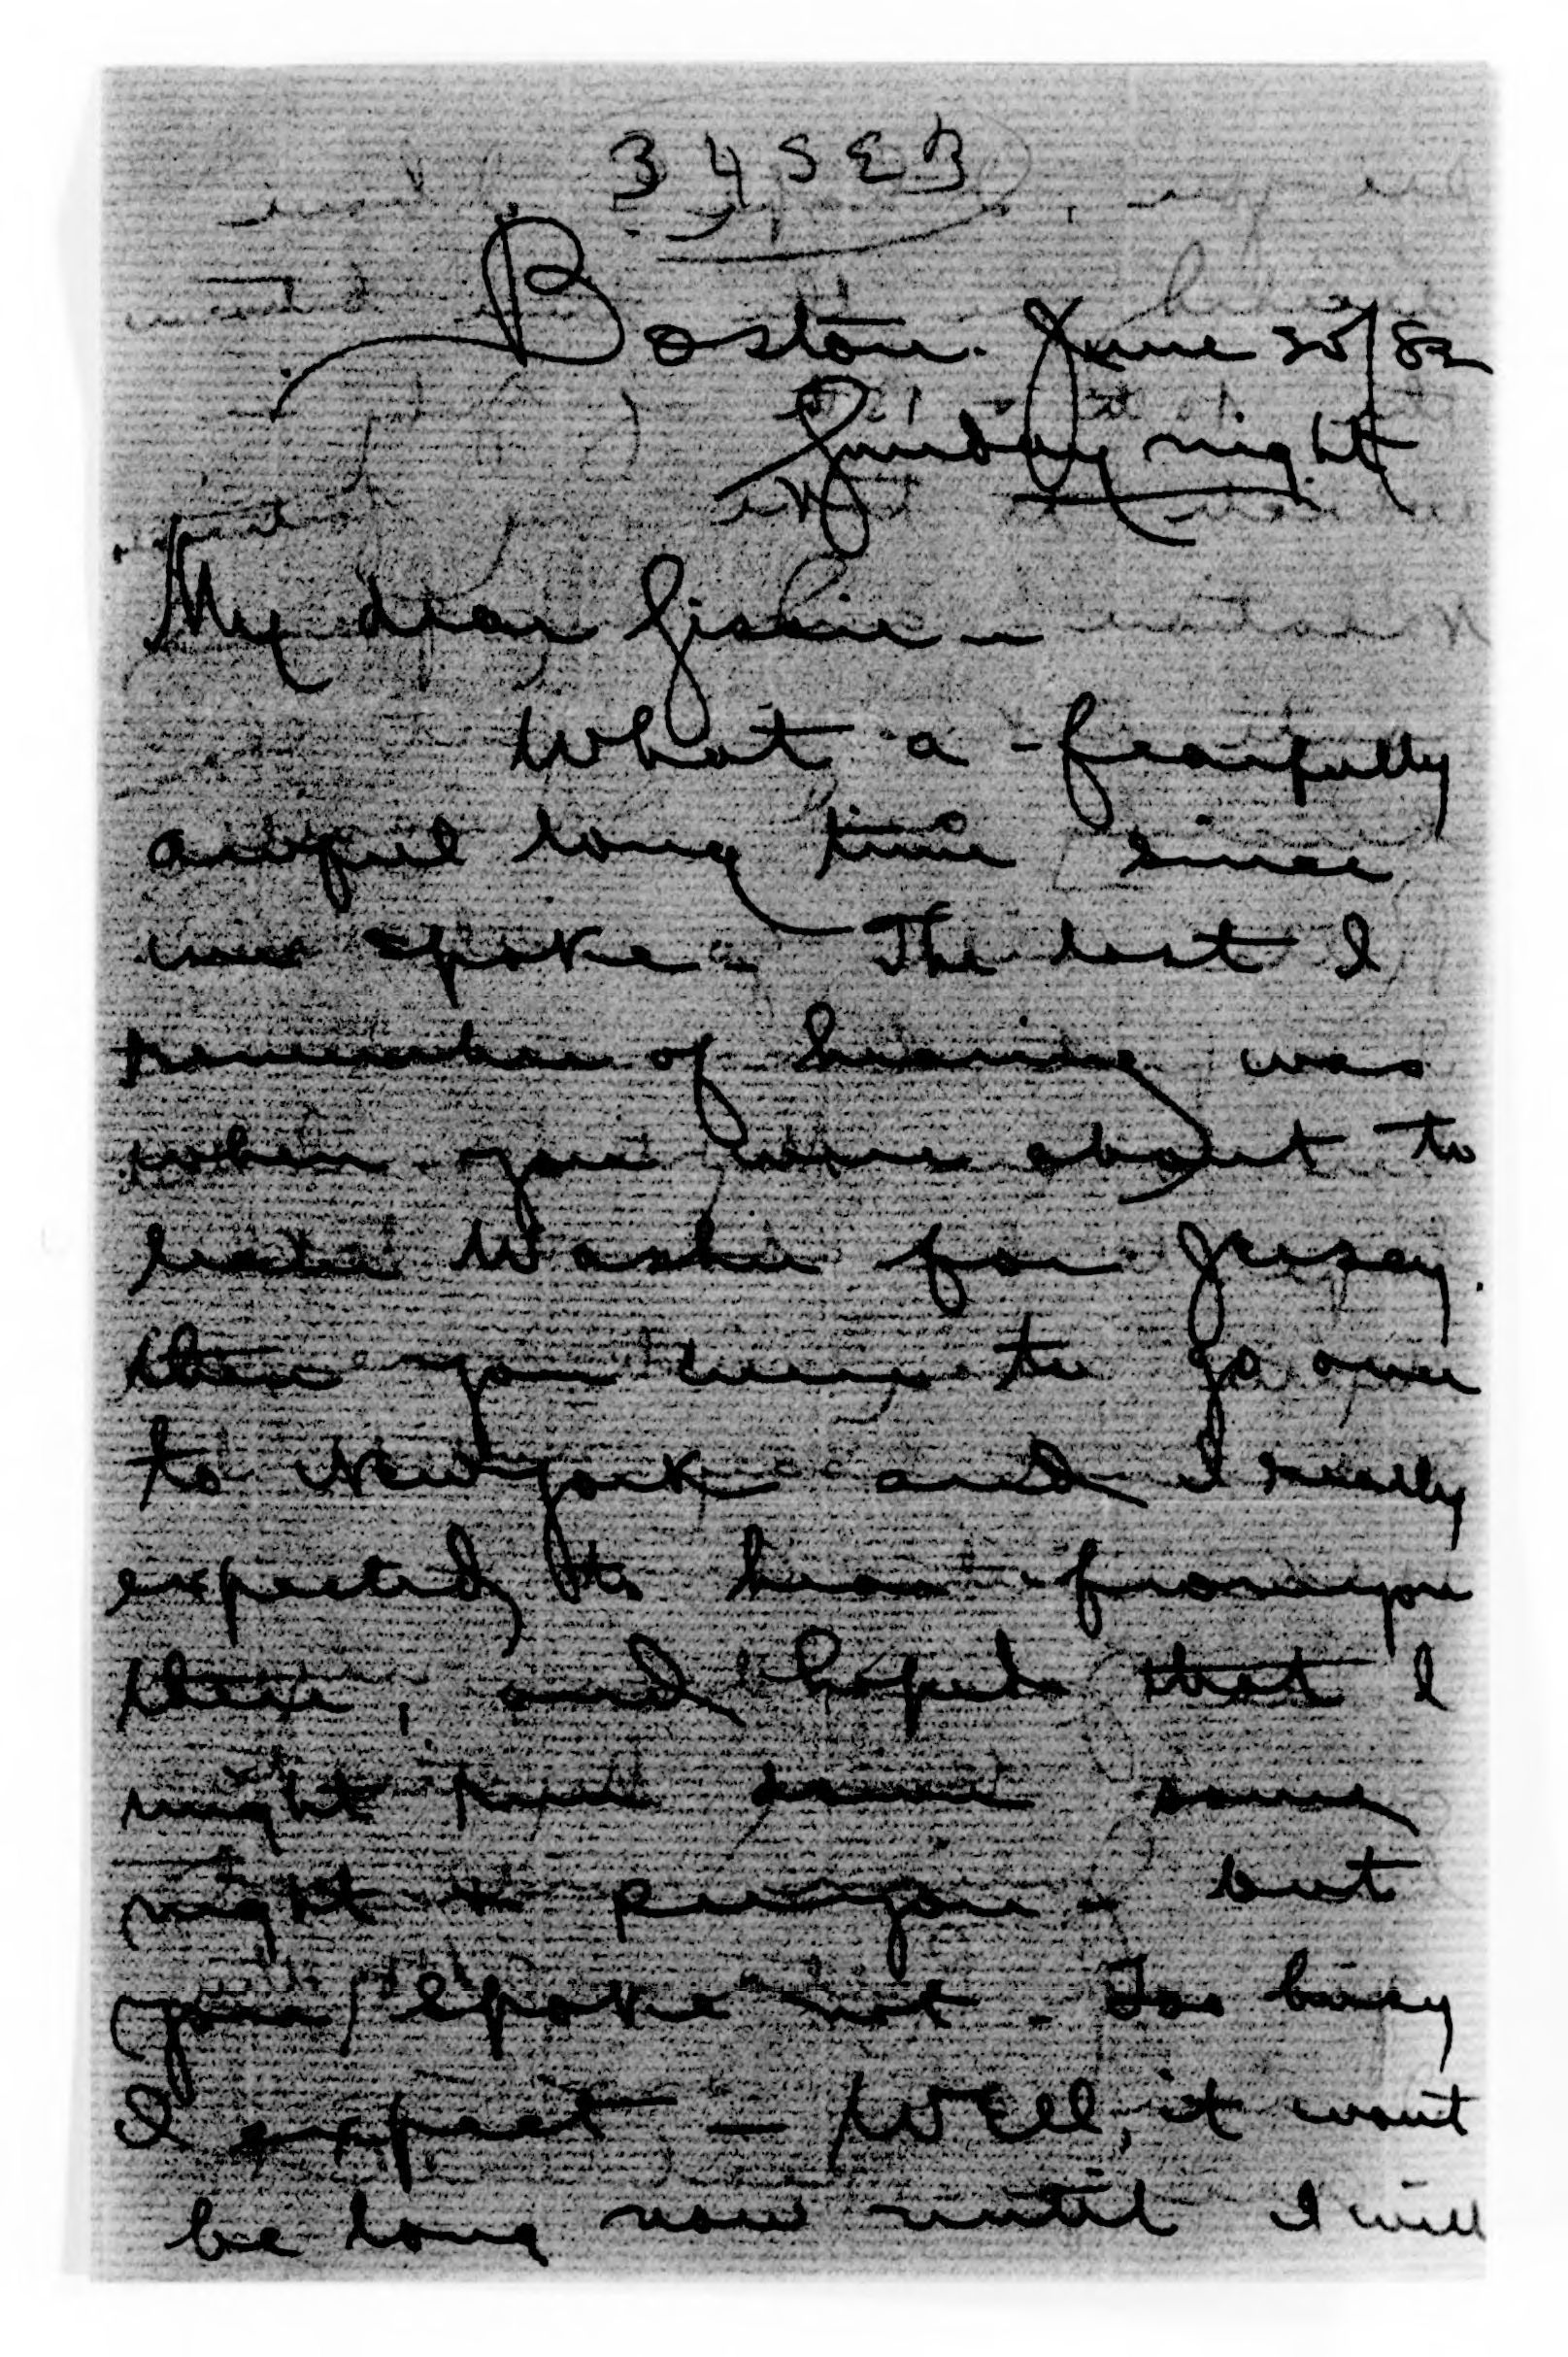 3 4 S E B
Boston. June 25/82
Sunday night
My dear
What a fearfully
awful long time since
we spoke. The last I
remember of hearing was
when you were about to
leave Washn for Jersey.
then you were to go over
to New York and I really
expected to hear from you
there, and hoped that I
might run down some
night & see you - but
you spoke not. Too busy
I expect - Well, it wont
be long now until I will